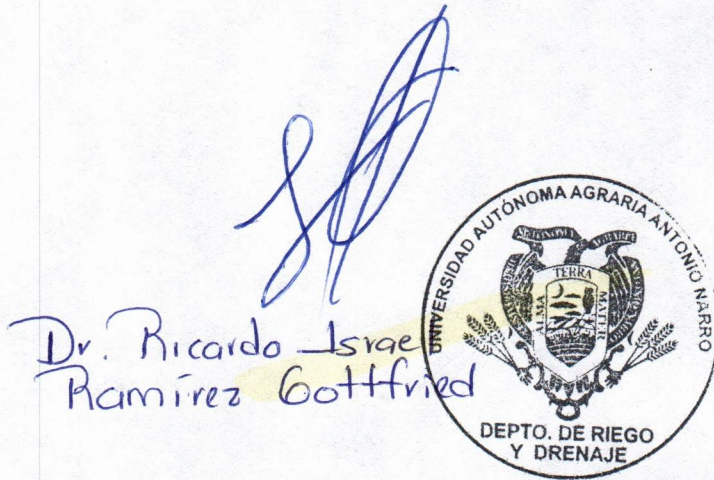 Dr. Ricardo Israel
Ramírez Gottfried
UNIVERSIDAD AUTÓNOMA AGRARIA ANTONIO NARRO
TERRA
ALMA MATER
DEPTO. DE RIEGO
Y DRENAJE